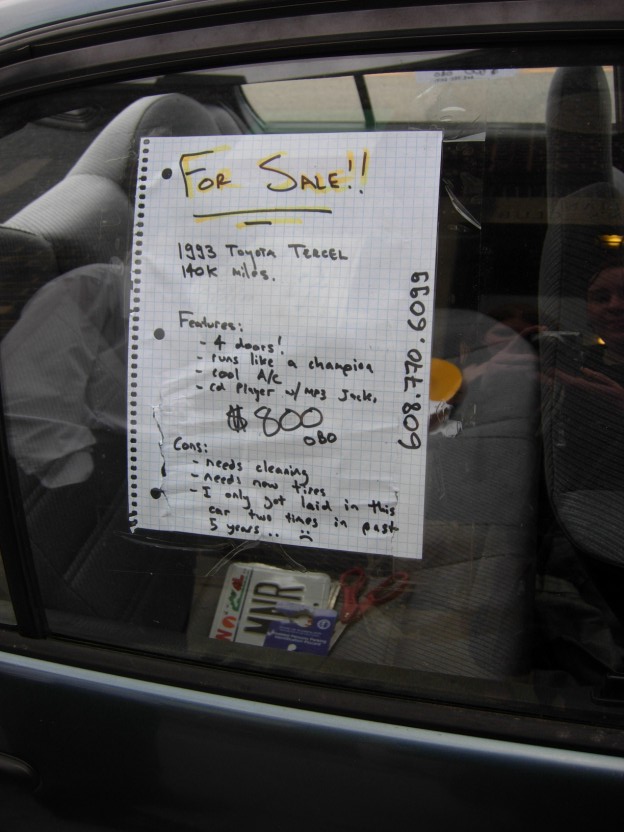 FOR SALE!!
1993 TOYOTA TERCEL
140K miles.
Features:
- 4 doors!
- runs like a champion
- cool A/C
- cd player w/ mp3 Jack.
$800
OBO
Cons:
- needs cleaning
- needs new tires
- I only got laid in this
car two times in past
5 years.. :(
608.770.6099
MNR